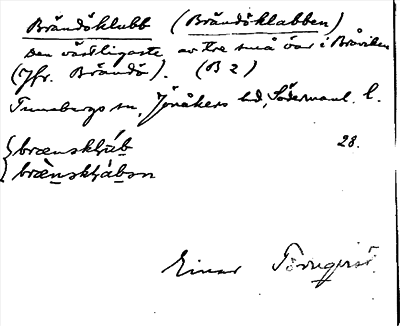 Brändöklubb (Brändöklabben)
Den västligaste av tre små öar i Bråviken
(Jfr. Brändö). (B 2)
Tunabergs sn, Jönåkers hd, Södermanl. l.
28.
Einar Törnqvist.